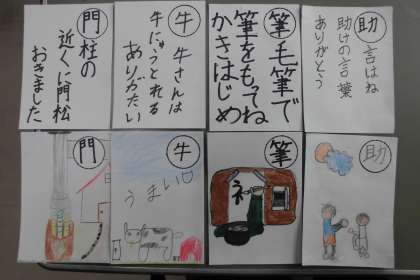 助
言はね
助けの言葉
ありがとう
筆
毛筆で
筆をもってね
かきはじめ
牛
牛さんは
牛にゅうとれる
ありがたい
門
門柱の
近くに門松
おきました
助
筆
ネ
牛
うまい
門